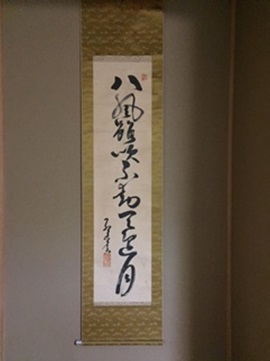 八風雖吹不動天辺月